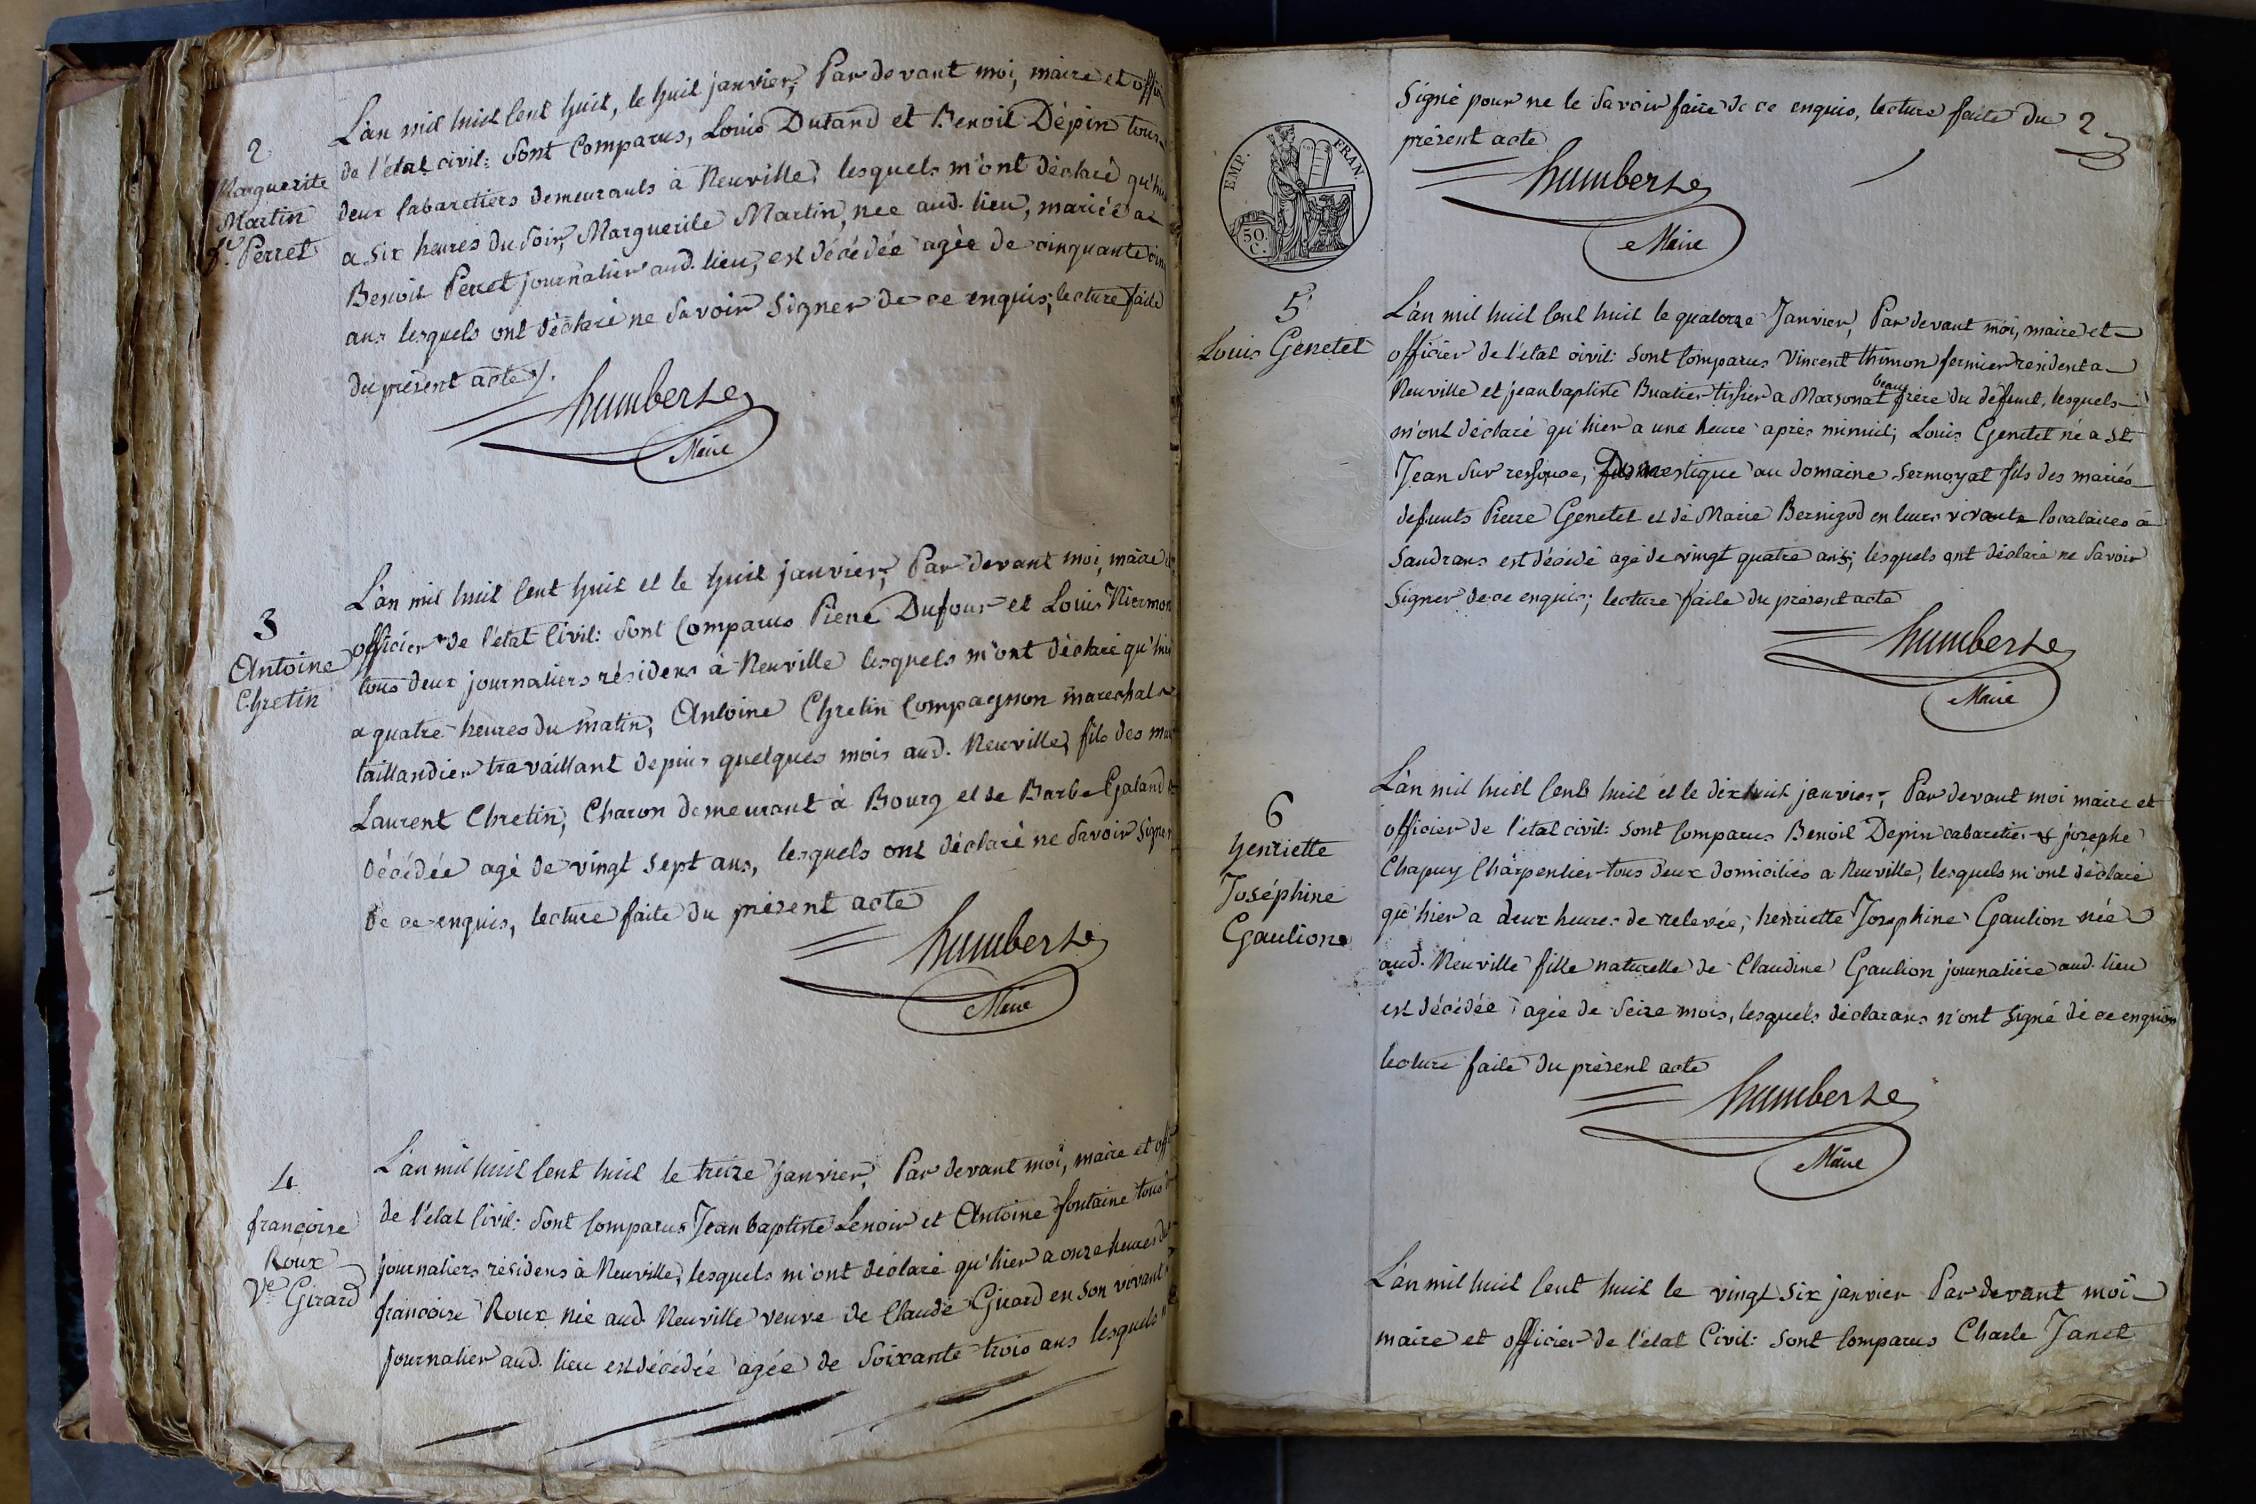 2
Marguerite
Martin
f.e Perret
L'an mil huit Cent huit, le huit janvier, Par devant moi, maire et offi
de l'état civil: sont Comparus, Louis Dutand et Benoit Dépin tous
deux Cabaretiers demeurants à Neuville, lesquels m'ont déclaré qu'hier
a six heures du soir, Marguerite Martin, née aud. lieu, mariée a
Benoit Perret journalier aud. lieu, est décédée agée de cinquante cinq
ans lesquels ont déclaré ne savoir signer de ce enquis, lecture faite
du présent acte ./.
humberte
Maire
3
Antoine
Chretin
L'an mil huit Cent huit et le huit janvier, Par devant moi, maire
officier de l'état Civil: sont Comparus Pierre Dufour et Louis Niermon
tous deux journaliers résidens à Neuville lesquels m'ont déclaré qu'hier
a quatre heures du matin, Antoine Chretin Compagnon marechal
taillandier travaillant depuis quelques mois aud. Neuville, fils des
Laurent Chretin, Charon demeurant à Bourg et de Barbe Galand
décédée agé de vingt sept ans, lesquels ont déclaré ne savoir signer
de ce enquis, lecture faite du présent acte
humberte
Maire
4
françoise
Roux
V.e Girard
L'an mil huit Cent huit le treize janvier, Par devant moi, maire et offi
de l'état Civil: sont Comparus Jean baptiste Lenoir et Antoine fontaine tous
journaliers résidens à Neuville, lesquels m'ont déclaré qu'hier a onze heures du
françoise Roux née aud. Neuville veuve de Claude Girard en son vivant
journalier aud. lieu est décédée agée de soixante trois ans lesquels n'
signé pour ne le savoir faire de ce enquis, lecture faite du 2
présent acte
humberte
Maire
EMP. FRAN.
50.
C.
5
Louis Genetet
L'an mil huit Cent huit le quatorze Janvier, Par devant moi, maire et
officier de l'état civil: sont Comparus Vincent thimon fermier resident a
Neuville et jean baptiste Buatier tissier a Marsonat beau frere du défunt, lesquels
m'ont déclaré qu'hier a une heure après minuit, Louis Genetet né a St
Jean sur ressouze, Domestique au domaine sermoyat fils des mariés
defunts Pierre Genetet et de Marie Bernigod en leurs vivants localaires à
Sandrans est décédé agé de vingt quatre ans, lesquels ont déclaré ne savoir
signer de ce enquis; lecture faite du présent acte
humberte
Maire
6
henriette
Joséphine
Gaulion
L'an mil huit Cent huit et le dix huit janvier, Par devant moi maire et
officier de l'état civil: sont Comparus Benoit Depin cabaretier & josephe
Chapuy Charpentier tous deux domiciliés a Neuville, lesquels m'ont déclaré
qu'hier a deux heures de relevée, henriette Josephine Gaulion née
aud. Neuville fille naturelle de Claudine Gaulion journalière aud. lieu
est décédée agée de seize mois, lesquels déclarans n'ont signé de ce enquis
lecture faite du présent acte
humberte
Maire
L'an mil huit Cent huit le vingt six janvier Par devant moi
maire et officier de l'état Civil: sont Comparus Charle Janet